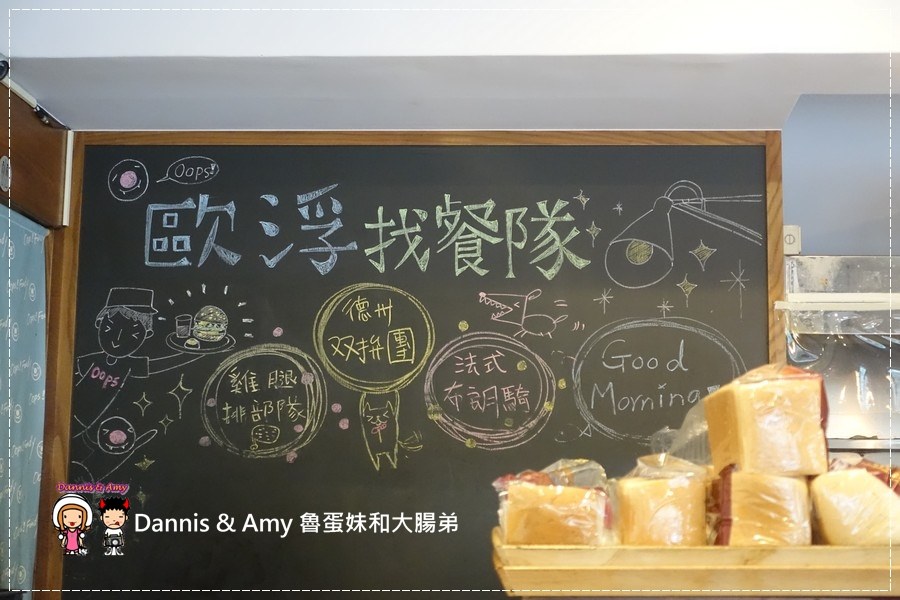 Oops!
歐浮找餐隊
德州
双拼團
雞腿
排部隊
法式
布說騎
Good
Morning
Oops
Dannis & Amy
Dannis & Amy 魯蛋妹和大腸弟